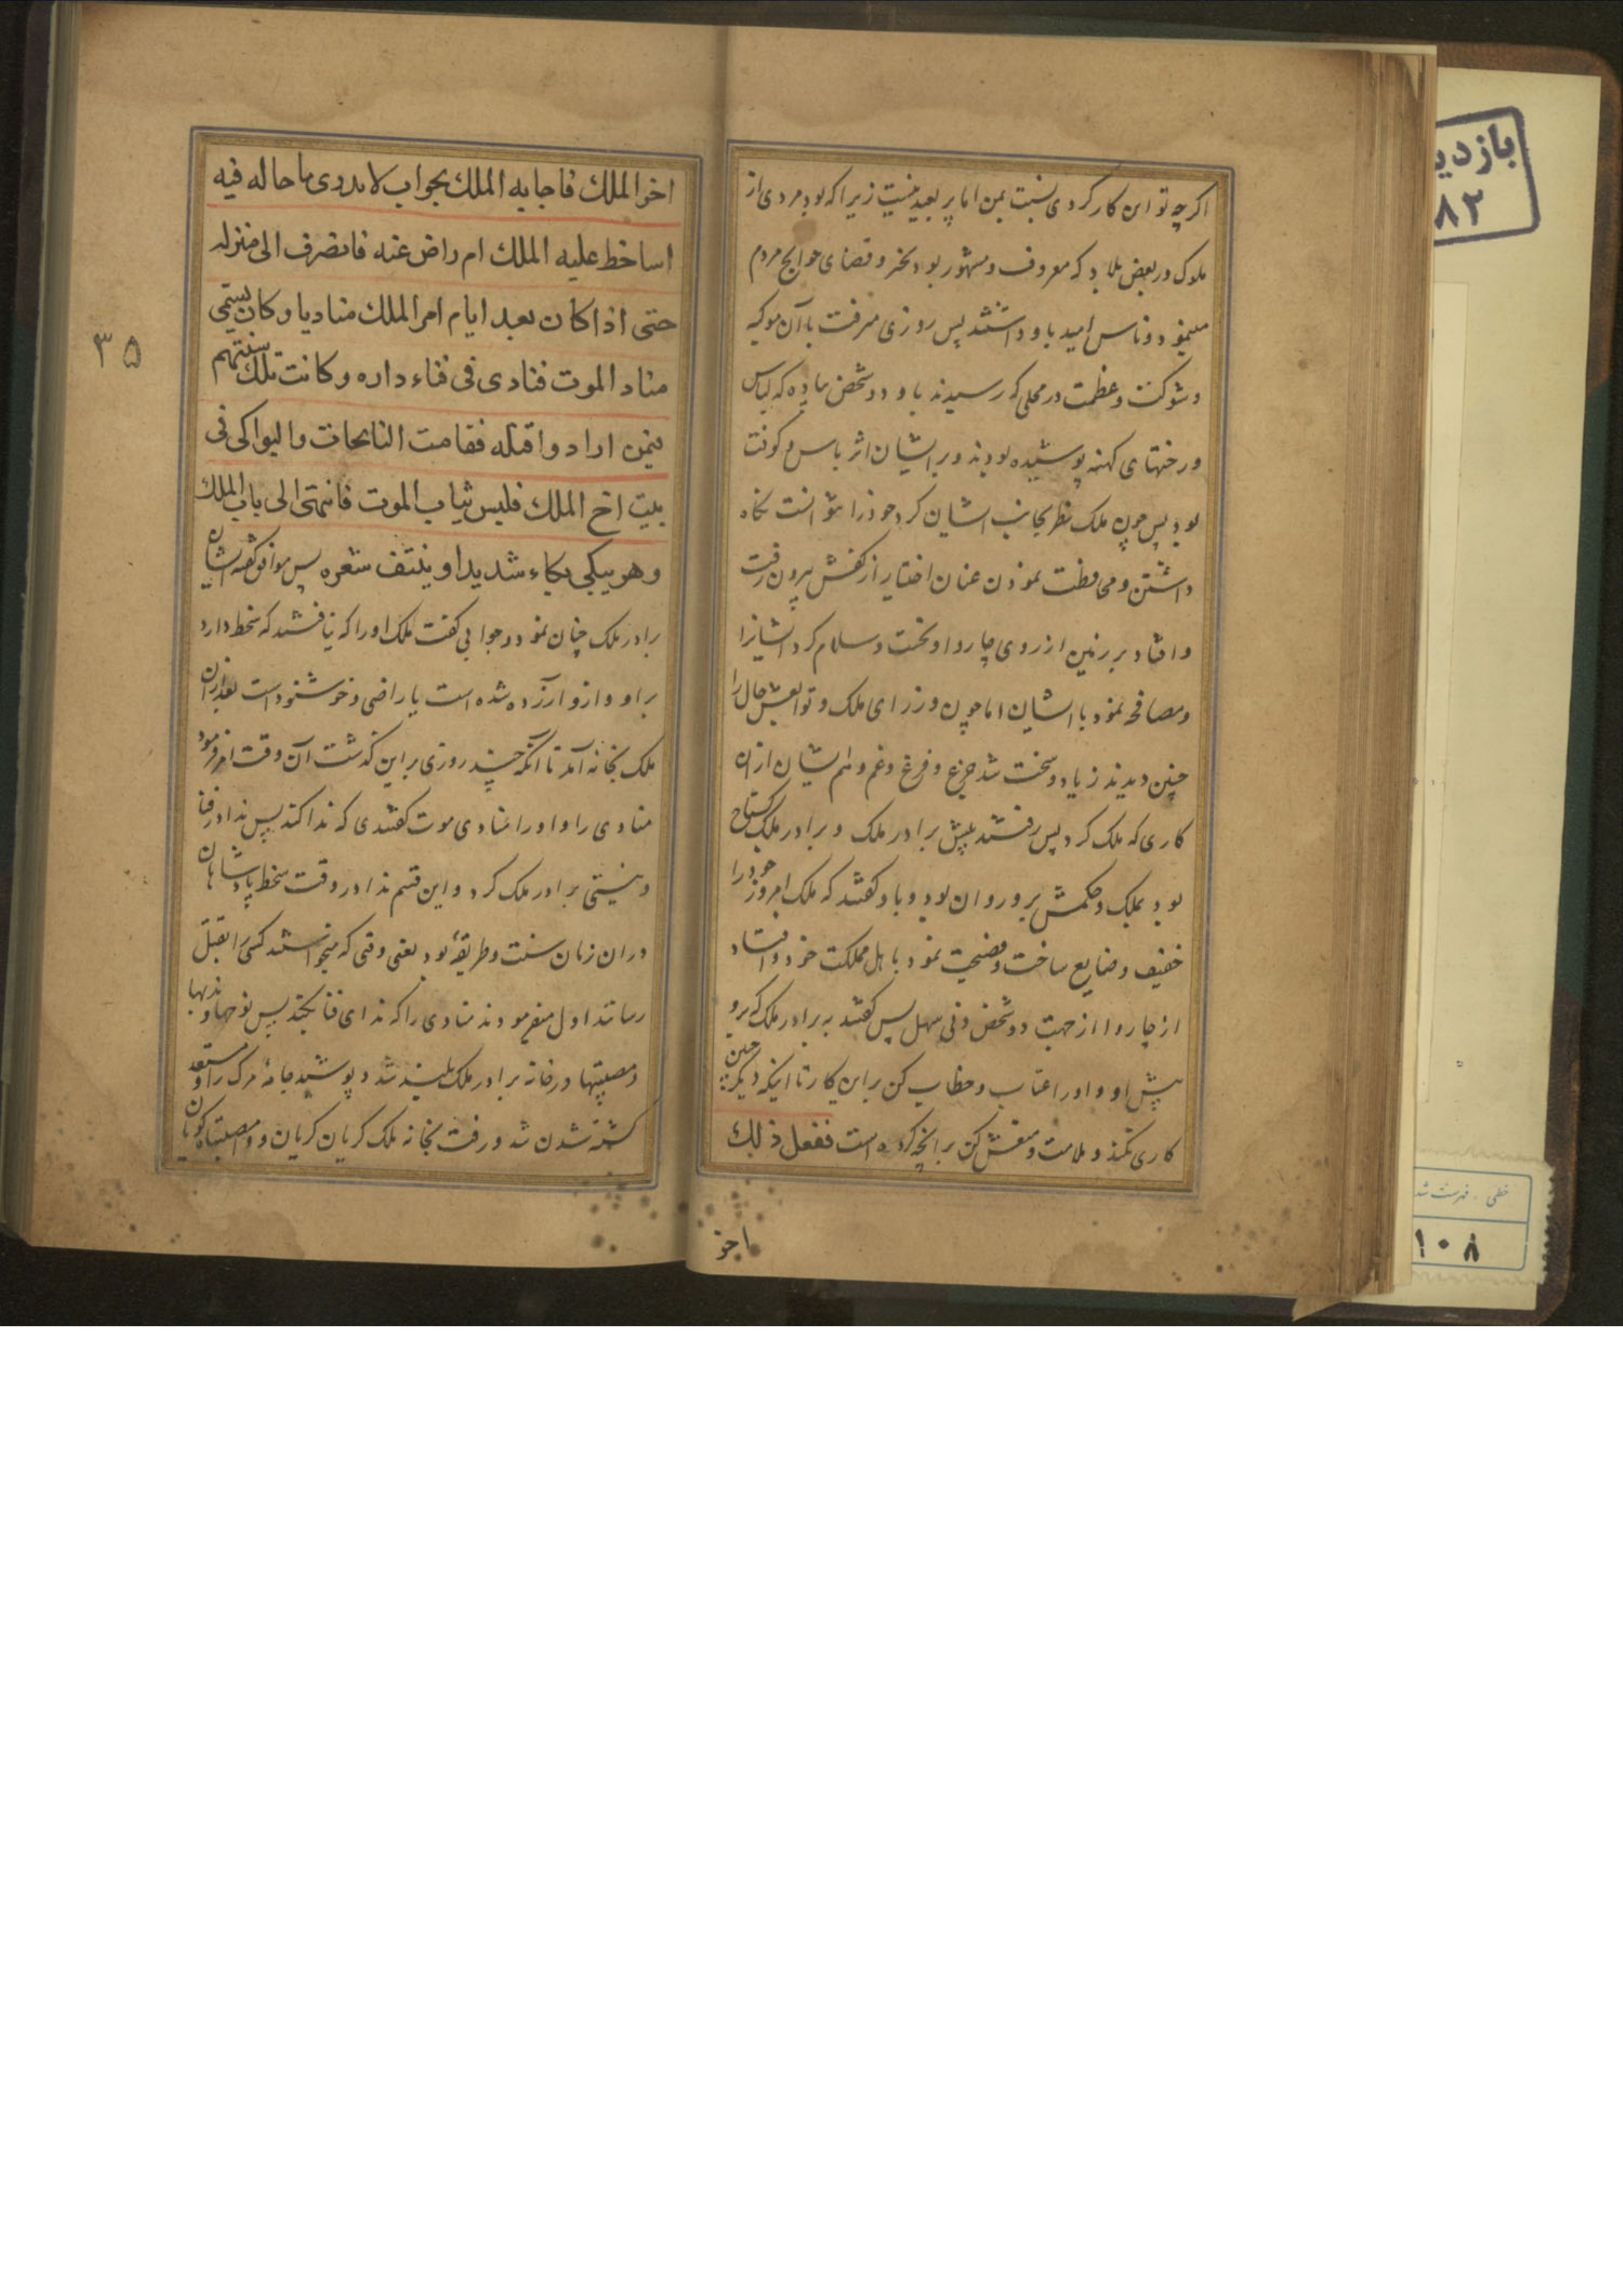 اکرچه تو این کار کردی نسبت بمن اما پر بعید نیست زیرا که بود مردی از
ملوک در بعض بلاد که معروف و مشهور بود بخیر و قضای حوایج مردم
مینمود و ناس امید باو داشتند پس روزی میرفت با آن موکبه
و شوکت و عظمت در محلی که رسیدند باو دو شخص پیاده که لباس
و رختهای کهنه پوشیده بودند و بر ایشان اثر باس و کونت
بود پس چون ملک نظر بجانب ایشان کرد خود را نتوانست نکاه
داشتن و محافظت نمودن عنان اختیار از کفش بیرون رفت
و افتاد بر زمین از روی چاروا و تحیت و سلام کرد ایشانرا
و مصافحه نمود با ایشان اما چون وزرای ملک و توابعش حال را
چنین دیدند زیاد و سخت شد جزع و فزع و غم و الم ایشان ازان
کاری که ملک کرد پس رفتند پیش برادر ملک و برادر ملک کستاخ
بود بملک و حکمش برو روان بود و باو کفتند که ملک امروز خود را
خفیف و ضایع ساخت و فضیحت نمود باهل مملکت خود و افتاد
از چاروا از جهت دو شخص دنی سهل پس کفتند به برادر ملک که برو
پیش او و او را عتاب و خطاب کن بر این کار تا اینکه دیکر چنین
کاری نکند و ملامت و سرزنش کن بر آنچه کرده است ففعل ذلك
اخو
اخو الملك فاجابه الملك بجواب لا يدرى ما حاله فيه
اساخط عليه الملك ام راض عنه فانصرف الى منزله
حتى اذا كان بعد ايام امر الملك مناديا و كان يسمى
مناد الموت فنادى فى فناء داره و كانت تلك سنتهم
فيمن ارادوا قتله فقامت النائحات و البواكى فى
بيت اخ الملك فلبس ثياب الموت فانتهى الى باب الملك
و هو يبكى بكاء شديدا و ينتف شعره پس موافق کفته ایشان
برادر ملک چنان نمود و جوابی کفت ملک او را که نیافتند که سخط دارد
بر او و ازو آزرده شده است یا راضی و خوشنود است بعد ازان
ملک بخانه آمد تا آنکه چند روزی بر این کذشت آن وقت امر فرمود
منادی را و او را منادی موت کفتندی که ندا کند پس ندا در فنا
و نیستی برادر ملک کرد و این قسم ندا در وقت سخط پادشاهان
دران زمان سنت و طریقهٔ بود یعنی وقتی که میخواستند کسی را بقتل
رسانند اول میفرمودند منادی را که ندای فنا بکند پس نوحها و ندبها
و مصیبتها در خانه برادر ملک بلند شد و پوشید جامهٔ مرک را و مستعد
کشته شدن شد و رفت بخانه ملک کریان کریان و وامصیبتاه کویان
۳۵
بازدید
۸۲
خطی - فهرست شد
۱۰۸